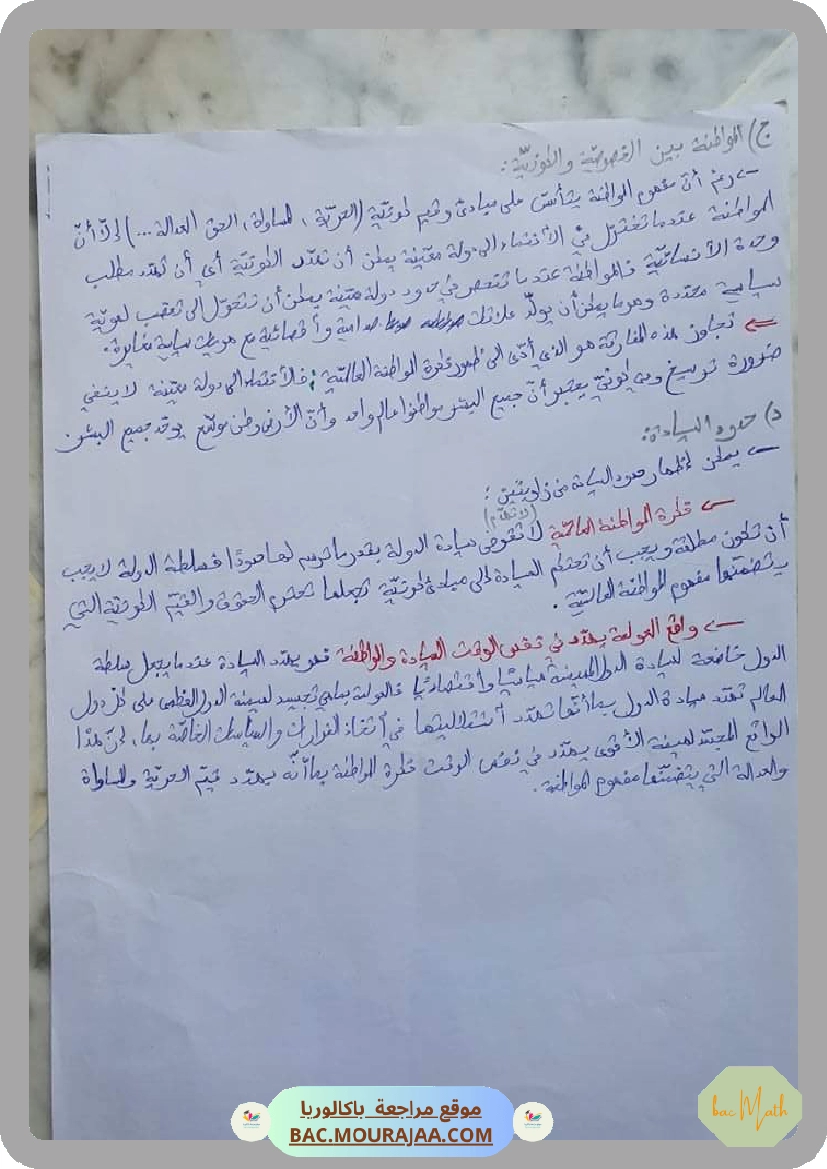 ج) المواطنة بين الخصوصيّة والكونيّة:
← رغم أنّ مفهوم المواطنة يتأسّس على مبادئ وقيم كونيّة (الحريّة، المساواة، الحق العدالة ...) إلاّ أنّ
المواطنة عندما تختزل في الانتماء الى دولة معيّنة يمكن أن تهدّد الكونيّة أي أن تهدد مطلب
وحدة الانسانيّة فالمواطنة عندما تنحصر في حدود دولة معيّنة يمكن أن تتحوّل الى تعصب لهويّة
سياسية محددة وهو ما يمكن أن يولّد علاقات صدامية وأقصائية مع هويات سياسية مغايرة.
⇐ تجاوز هذه المفارقة هو الذي أدّى الى ظهور فكرة المواطنة العالميّة: فالانتماء الى دولة معيّنة لا ينفي
ضرورة ترسيخ وعي كونيّ يعتبر أنّ جميع البشر مواطنوا عالم واحد وأنّ الأرض وطن موسّع يوحّد جميع البشر.
د) حدود السيادة:
← يمكن إظهار حدود السيادة من زاويتين:
← فكرة المواطنة العالميّة لا تقوض سيادة الدولة بقدر ما ترسم لها حدودًا فسلطة الدولة لا يجب
أن تكون مطلقة ويجب أن تحتكم السيادة الى مبادئ كونيّة تجعلها تحترم الحقوق والقيم الكونية التي
يتضمّنها مفهوم المواطنة العالميّة.
← واقع العولمة يهدّد في نفس الوقت السيادة والمواطنة فهو يهدد السيادة عندما يجعل سلطة
الدول خاضعة لسيادة الدول المهيمنة سياسيّا واقتصاديّا فالعولمة بماهي تجسيد لهيمنة الدول العظمى على كل دول
العالم تهدد سيادة الدول بما أنّها تهدّد استقلاليتها في أتخاذ القرارات والسياسات الخاصّة بها، لكن هذا
الواقع المجسّد لهيمنة الأقوى يهدّد في نفس الوقت فكرة المواطنة بما أنّه يهدّد قيم الحريّة والمساواة
والعدالة التي يتضمّنها مفهوم المواطنة.
موقع مراجعة باكالوريا
BAC.MOURAJAA.COM
bac Math